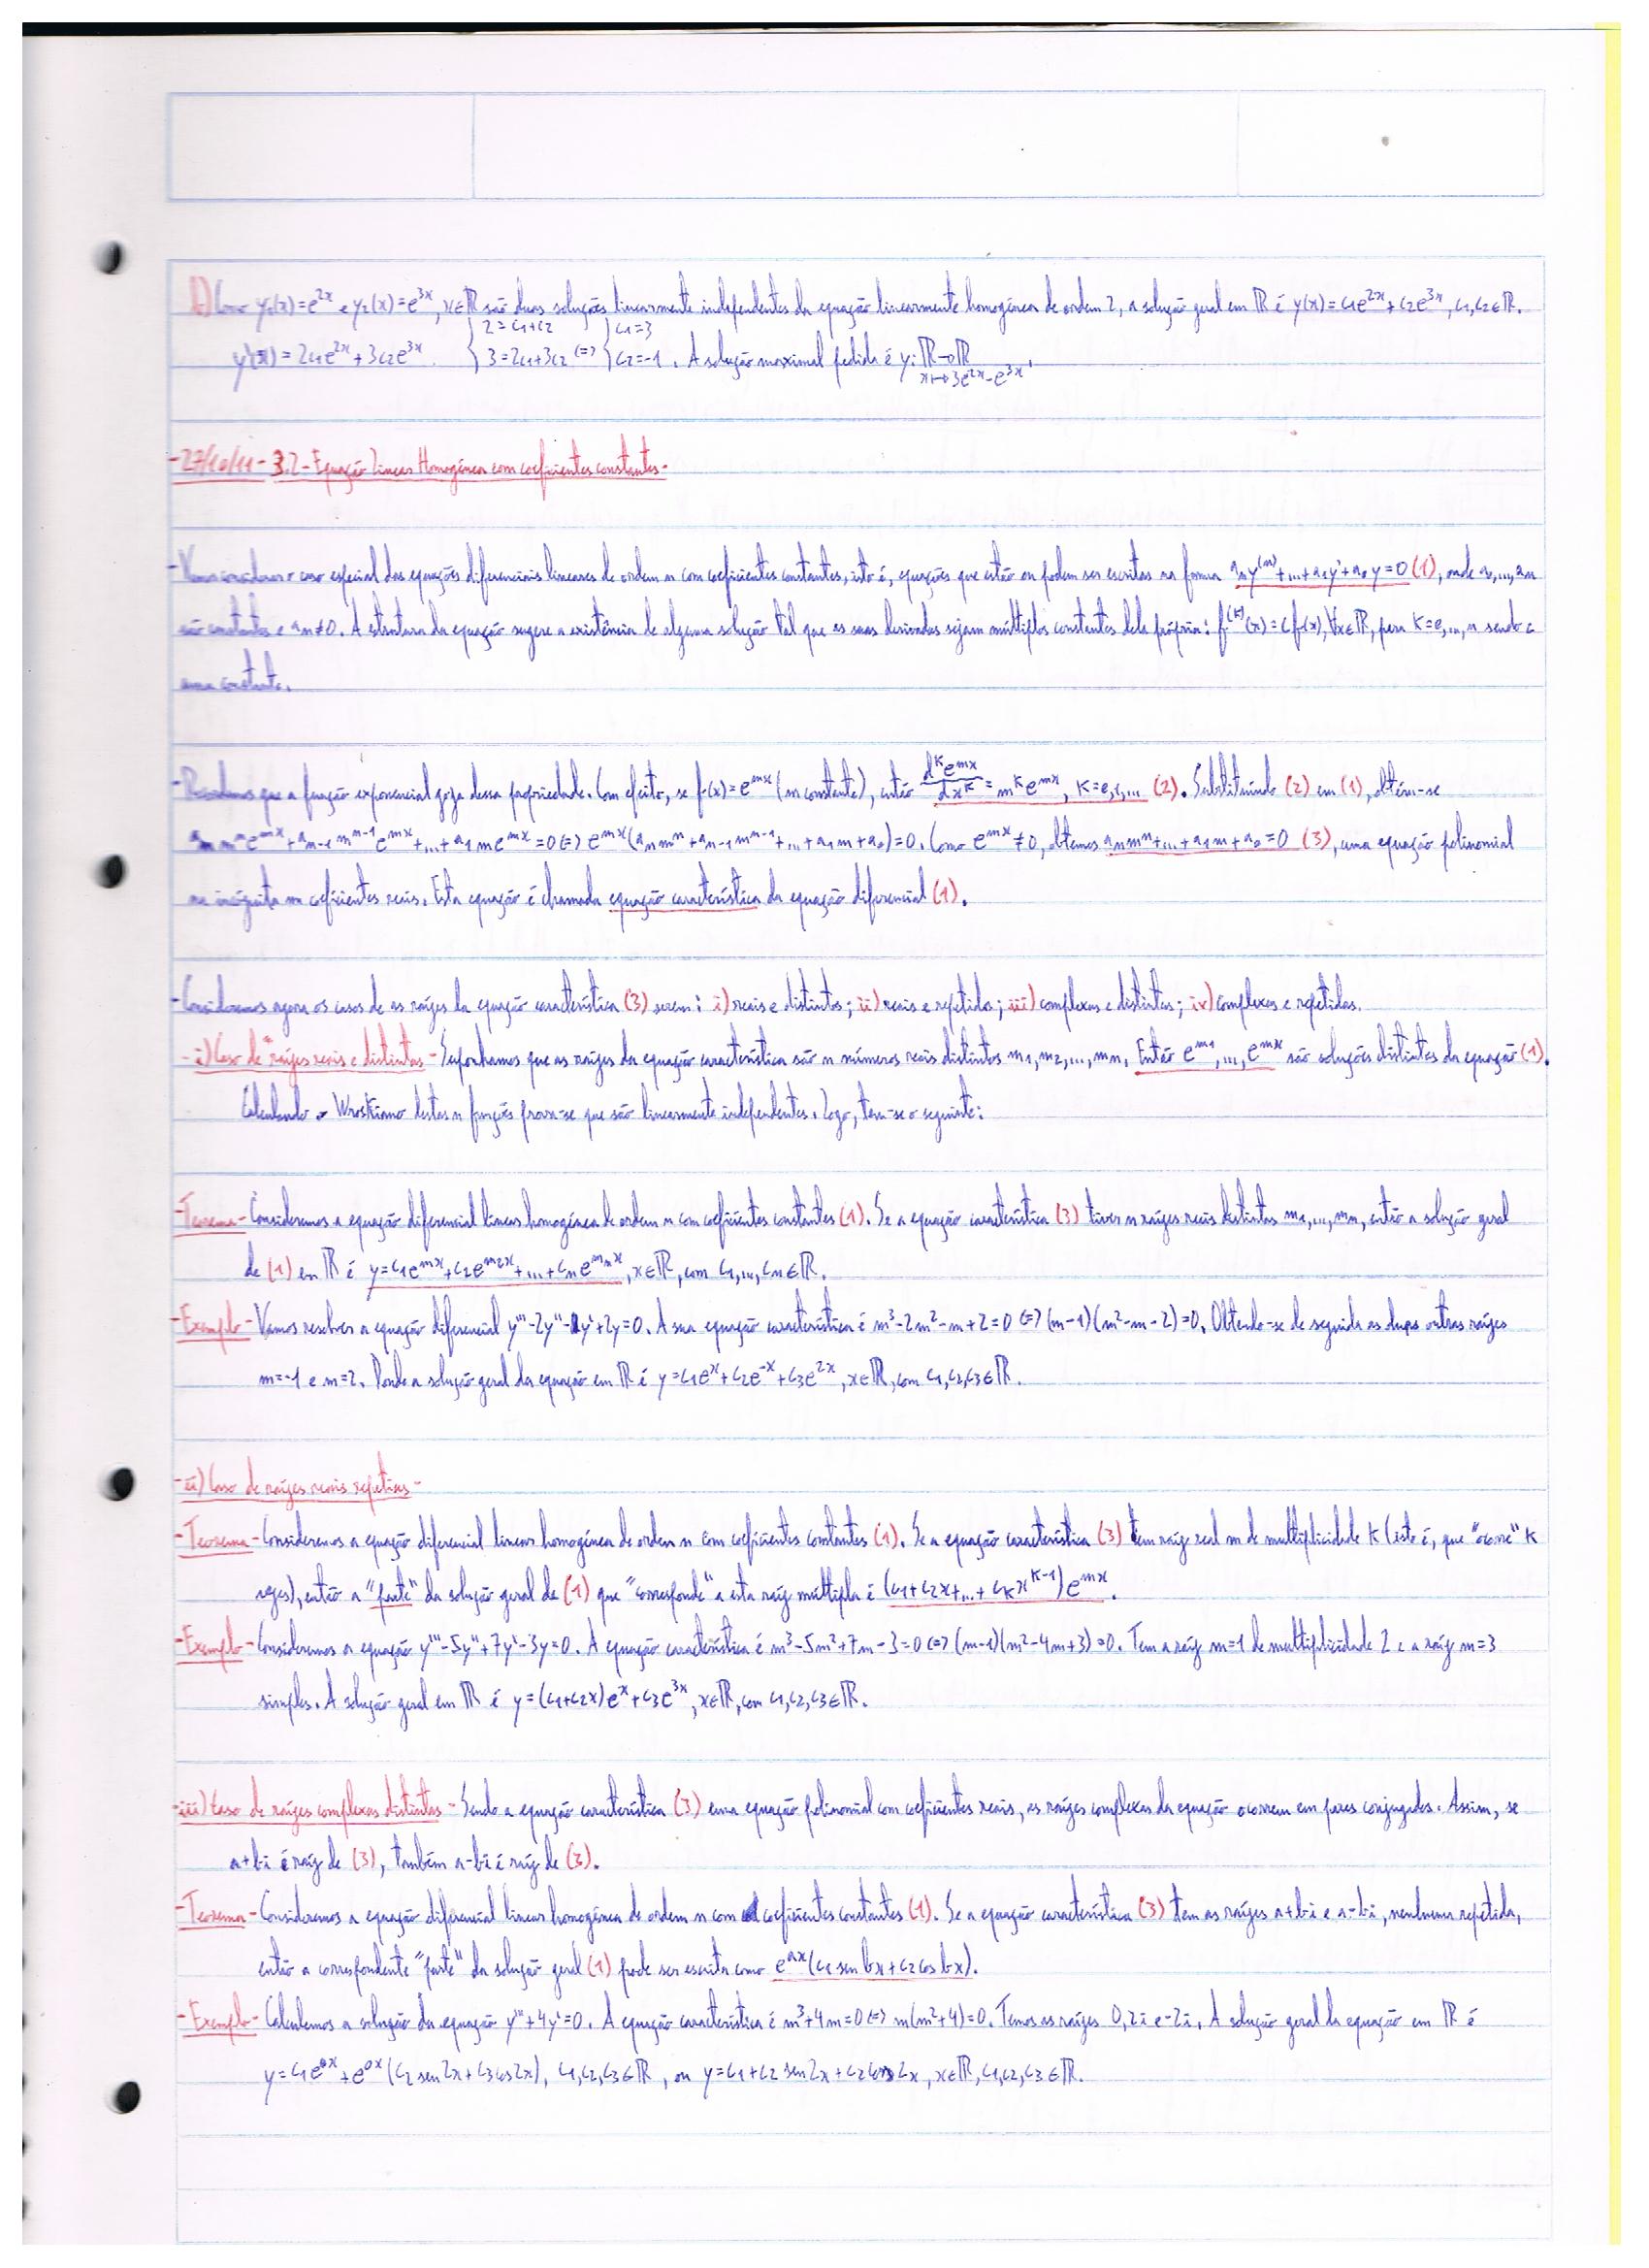 b) Como y₁(x)=e^{2x} e y₂(x)=e^{3x}, x∈ℝ são duas soluções linearmente independentes da equação linearmente homogénea de ordem 2, a solução geral em ℝ é y(x)=c₁e^{2x}+c₂e^{3x}, c₁,c₂∈ℝ.
y'(x)=2c₁e^{2x}+3c₂e^{3x}. {2=c₁+c₂ 3=2c₁+3c₂ (=) {c₁=3 c₂=-1. A solução maximal pedida é y: ℝ→ℝ x↦3e^{2x}-e^{3x}.
-27/10/11- 3.2-Equação Linear Homogénea com coeficientes constantes-
-Vamos considerar o caso especial das equações diferenciais lineares de ordem n com coeficientes constantes, isto é, equações que estão ou podem ser escritas na forma aₙy^{(n)}+...+a₁y'+a₀y=0 (1), onde a₀,...,aₙ
são constantes e aₙ≠0. A estrutura da equação sugere a existência de alguma solução tal que as suas derivadas sejam múltiplos constantes dela própria: f^{(k)}(x)=cf(x), ∀x∈ℝ, para k=0,...,n sendo c
uma constante.
-Recordemos que a função exponencial goza dessa propriedade. Com efeito, se f(x)=e^{mx} (m constante), então d^k e^{mx}/dx^k = m^k e^{mx}, k=0,1,... (2). Substituindo (2) em (1), obtém-se
aₙmⁿe^{mx}+aₙ₋₁m^{n-1}e^{mx}+...+a₁me^{mx}=0 (=) e^{mx}(aₙmⁿ+aₙ₋₁m^{n-1}+...+a₁m+a₀)=0. Como e^{mx}≠0, obtemos aₙmⁿ+...+a₁m+a₀=0 (3), uma equação polinomial
na incógnita m coeficientes reais. Esta equação é chamada equação característica da equação diferencial (1).
-Consideremos agora os casos de as raízes da equação característica (3) serem: i) reais e distintos; ii) reais e repetidos; iii) complexas e distintas; iv) complexas e repetidas.
-i) Caso de raízes reais e distintas - Suponhamos que as raízes da equação característica são n números reais distintos m₁,m₂,...,mₙ. Então e^{m₁},...,e^{mx} são soluções distintas da equação (1).
Calculando o Wroskiano destas n funções prova-se que são linearmente independentes. Logo, tem-se o seguinte:
-Teorema-Consideremos a equação diferencial linear homogénea de ordem n com coeficientes constantes (1). Se a equação característica (3) tiver n raízes reais distintas m₁,...,mₙ, então a solução geral
de (1) em ℝ é y=c₁e^{mx}+c₂e^{m₂x}+...+cₙe^{mₙx}, x∈ℝ, com c₁,...,cₙ∈ℝ.
-Exemplo-Vamos resolver a equação diferencial y'''-2y''-y'+2y=0. A sua equação característica é m³-2m²-m+2=0 (=) (m-1)(m²-m-2)=0. Obtendo-se de seguida as duas outras raízes
m=-1 e m=2. Donde a solução geral da equação em ℝ é y=c₁eˣ+c₂e^{-x}+c₃e^{2x}, x∈ℝ, com c₁,c₂,c₃∈ℝ.
-ii) Caso de raízes reais repetidas-
-Teorema-Consideremos a equação diferencial linear homogénea de ordem n com coeficientes constantes (1). Se a equação característica (3) tem raíz real m de multiplicidade k (isto é, que "ocorre" k
vezes), então a "parte" da solução geral de (1) que "corresponde" a esta raíz múltipla é (c₁+c₂x+...+cₖx^{k-1})e^{mx}.
-Exemplo-Consideremos a equação y'''-5y''+7y'-3y=0. A equação característica é m³-5m²+7m-3=0 (=) (m-1)(m²-4m+3)=0. Tem a raíz m=1 de multiplicidade 2 e a raíz m=3
simples. A solução geral em ℝ é y=(c₁+c₂x)eˣ+c₃e^{3x}, x∈ℝ, com c₁,c₂,c₃∈ℝ.
-iii) Caso de raízes complexas distintas - Sendo a equação característica (3) uma equação polinomial com coeficientes reais, as raízes complexas da equação ocorrem em pares conjugados. Assim, se
a+bi é raíz de (3), também a-bi é raíz de (3).
-Teorema-Consideremos a equação diferencial linear homogénea de ordem n com coeficientes constantes (1). Se a equação característica (3) tem as raízes a+bi e a-bi, nenhuma repetida,
então a correspondente "parte" da solução geral (1) pode ser escrita como e^{ax}(c₁ sen bx+c₂ cos bx).
-Exemplo-Calculemos a solução da equação y'''+4y'=0. A equação característica é m³+4m=0 (=) m(m²+4)=0. Temos as raízes 0, 2i e -2i. A solução geral da equação em ℝ é
y=c₁e^{0x}+e^{0x}(c₂ sen 2x+c₃ cos 2x), c₁,c₂,c₃∈ℝ, ou y=c₁+c₂ sen 2x+c₂ cos 2x, x∈ℝ, c₁,c₂,c₃∈ℝ.